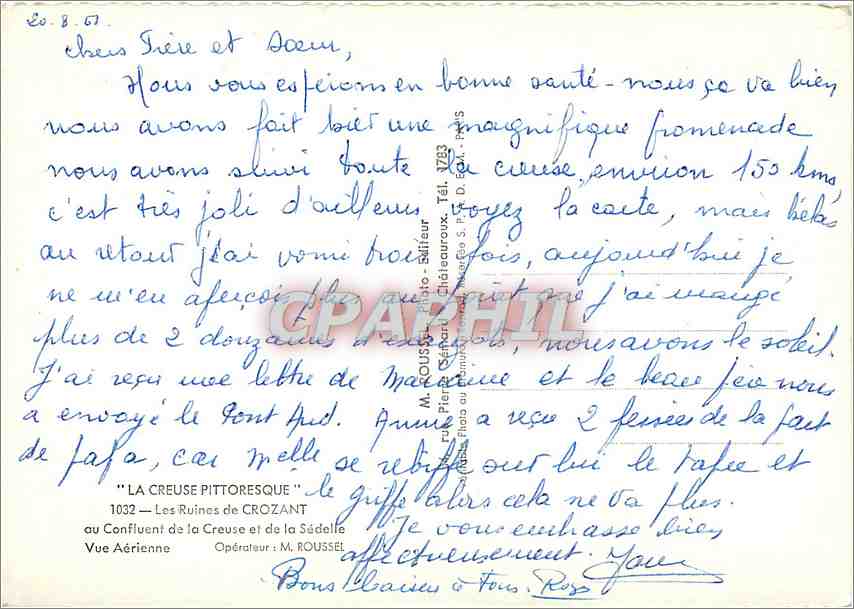 20.8.61.
chers Frère et Sœur,
Nous vous espérons en bonne santé - nous ça va bien
nous avons fait hier une magnifique promenade
nous avons suivi toute la creuse, environ 150 kms,
c'est très joli d'ailleurs voyez la carte, mais hélas
au retour j'ai vomi trois fois, aujourd'hui je
ne m'en aperçois plus au point que j'ai mangé
plus de 2 douzaines d'escargots, nous avons le soleil.
J'ai reçu une lettre de et le beau père nous
a envoyé le Pont Aud. Annie a reçu 2 fessées de la part
de papa, car Melle se rebiffe sur lui le tape et
le griffe alors cela ne va plus.
Je vous embrasse bien
affectueusement.
Bons baisers à Tous.
"LA CREUSE PITTORESQUE"
1032 — Les Ruines de CROZANT
au Confluent de la Creuse et de la Sédelle
Vue Aérienne Opérateur : M. ROUSSEL
M. ROUSSEL, Photo - Editeur
rue Pierre Sémard - Châteauroux. Tél. 1783
CPAPHIL